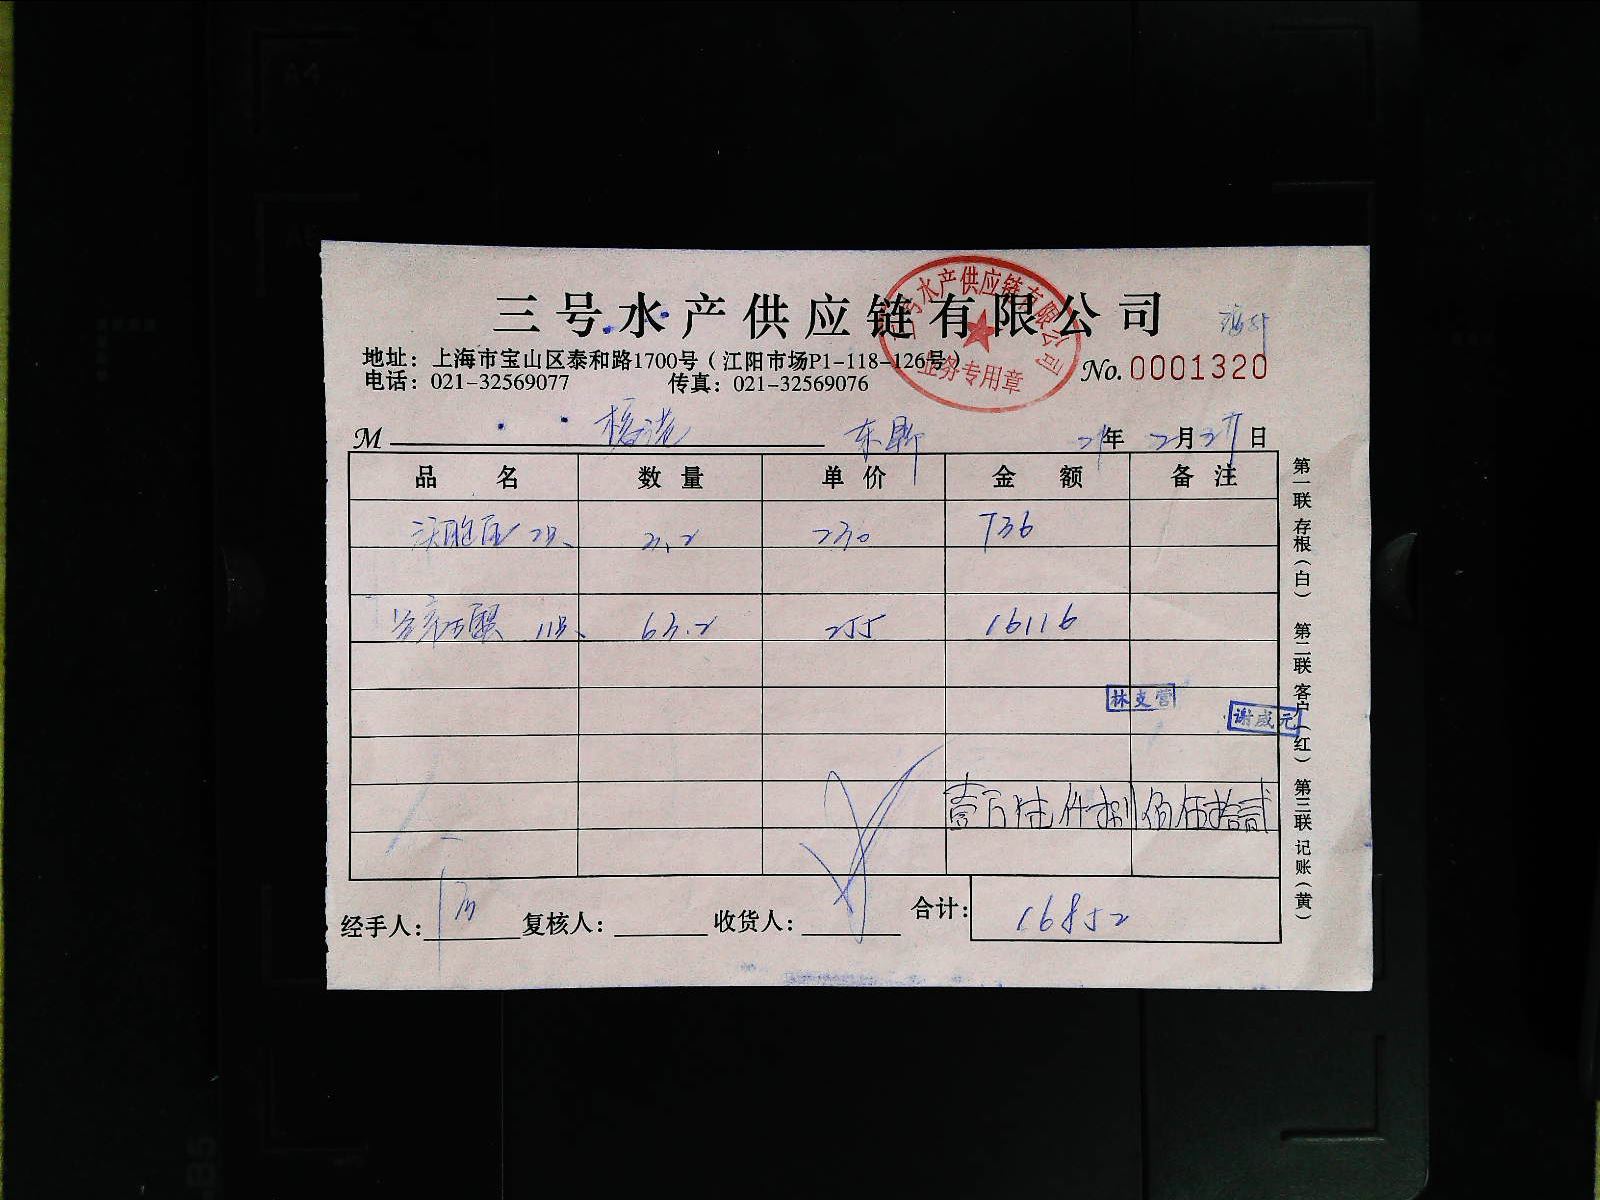 三号水产供应链有限公司
三号水产供应链有限公司
业务专用章
地址：上海市宝山区泰和路1700号（江阳市场P1-118-126号）
电话：021-32569077 传真：021-32569076
No.0001320
M
年 2月 日
品名 数量 单价 金额 备注
3.2 230 736
63.2 255 16116
林支营
谢成元
壹万陆仟捌佰伍拾贰
经手人： 复核人： 收货人： 合计： 16852
第一联 存根（白） 第二联 客户（红） 第三联 记账（黄）
A4
B5